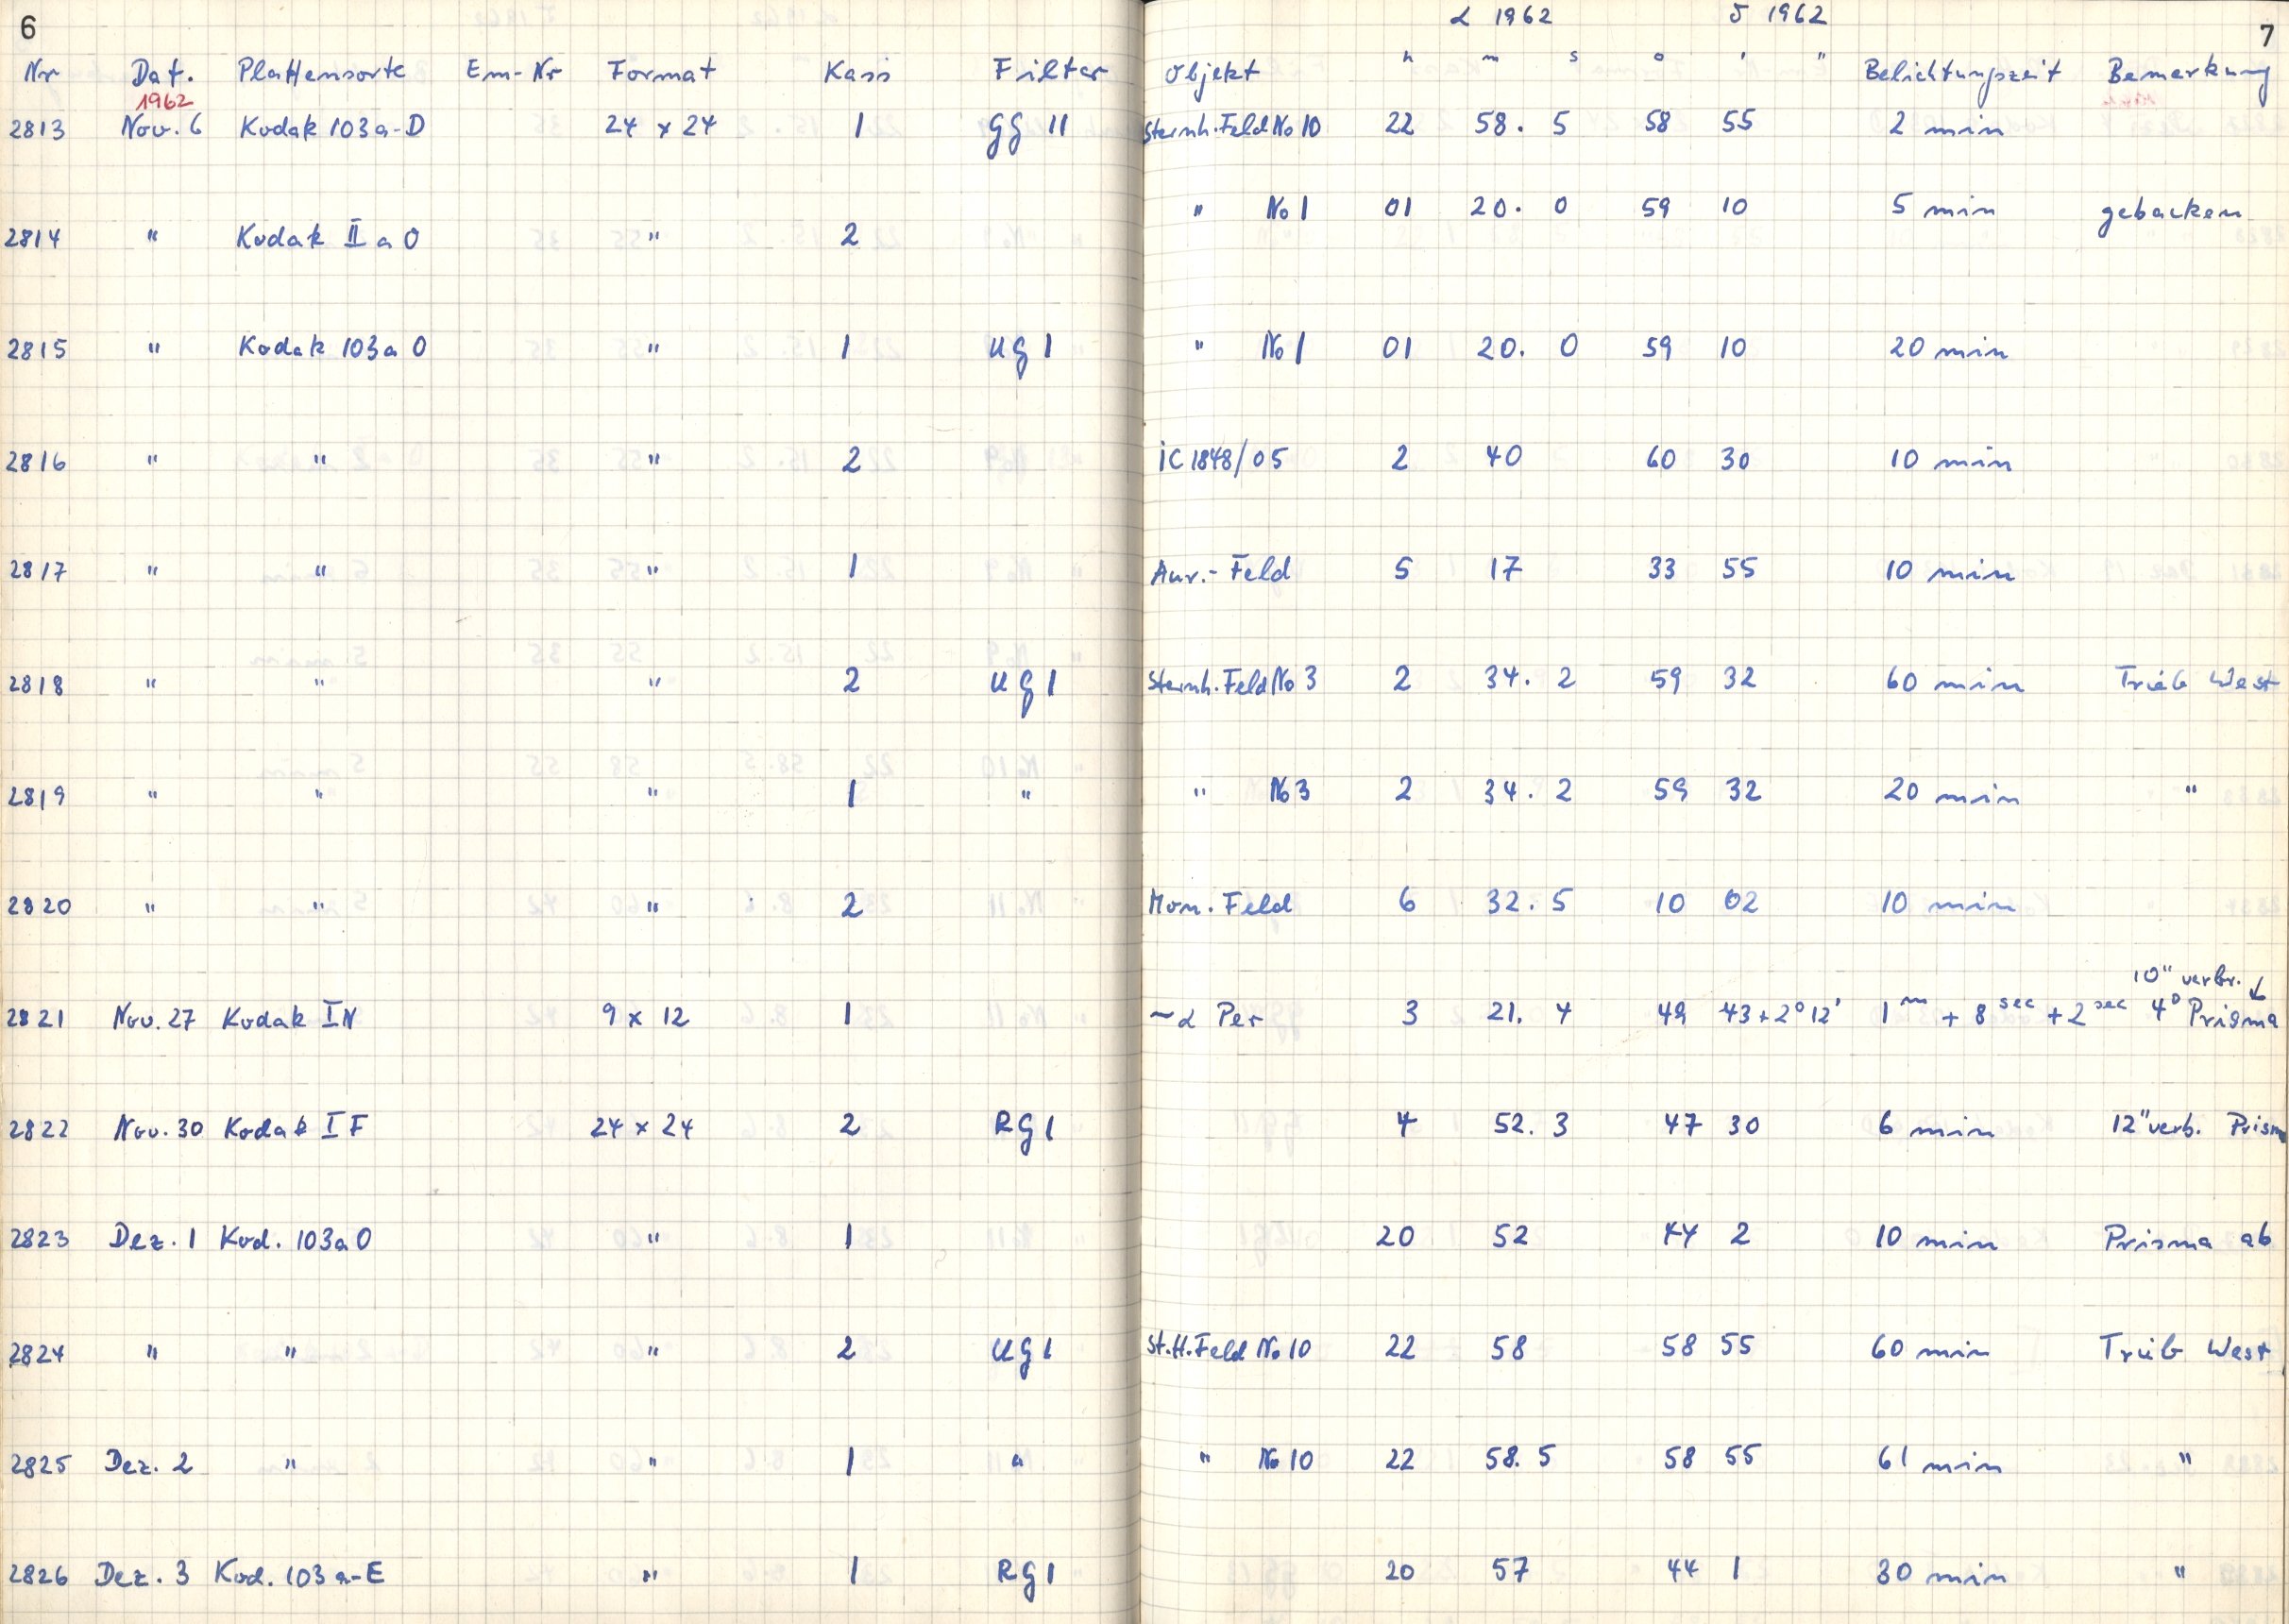 6
α 1962 δ 1962 7
Nr Dat. Plattensorte Em-Nr Format Kass Filter Objekt h m s ° ' " Belichtungszeit Bemerkung
1962
2813 Nov. 6 Kodak 103a-D 24 x 24 1 GG 11 Sternh. Feld No 10 22 58. 5 58 55 2 min
2814 " Kodak II a O " 2 " No 1 01 20. 0 59 10 5 min gebacken
2815 " Kodak 103a O " 1 UG 1 " No 1 01 20. 0 59 10 20 min
2816 " " " 2 IC 1848/05 2 40 60 30 10 min
2817 " " " 1 Aur.-Feld 5 17 33 55 10 min
2818 " " " 2 UG 1 Sternh. Feld No 3 2 34. 2 59 32 60 min Trieb West
2819 " " " 1 " " No 3 2 34. 2 59 32 20 min "
2820 " " " 2 Mon. Feld 6 32. 5 10 02 10 min
10" verbr. ↓
2821 Nov. 27 Kodak I N 9 x 12 1 ~α Per 3 21. 4 49 43 + 2° 12' 1 m + 8 sec + 2 sec 4° Prisma
2822 Nov. 30 Kodak I F 24 x 24 2 RG 1 4 52. 3 47 30 6 min 12" verb. Prism
2823 Dez. 1 Kod. 103a O " 1 20 52 44 2 10 min Prisma ab
2824 " " " 2 UG 1 St.H. Feld No 10 22 58 58 55 60 min Trieb West
2825 Dez. 2 " " 1 " " No 10 22 58. 5 58 55 61 min "
2826 Dez. 3 Kod. 103a-E " 1 RG 1 20 57 44 1 30 min "